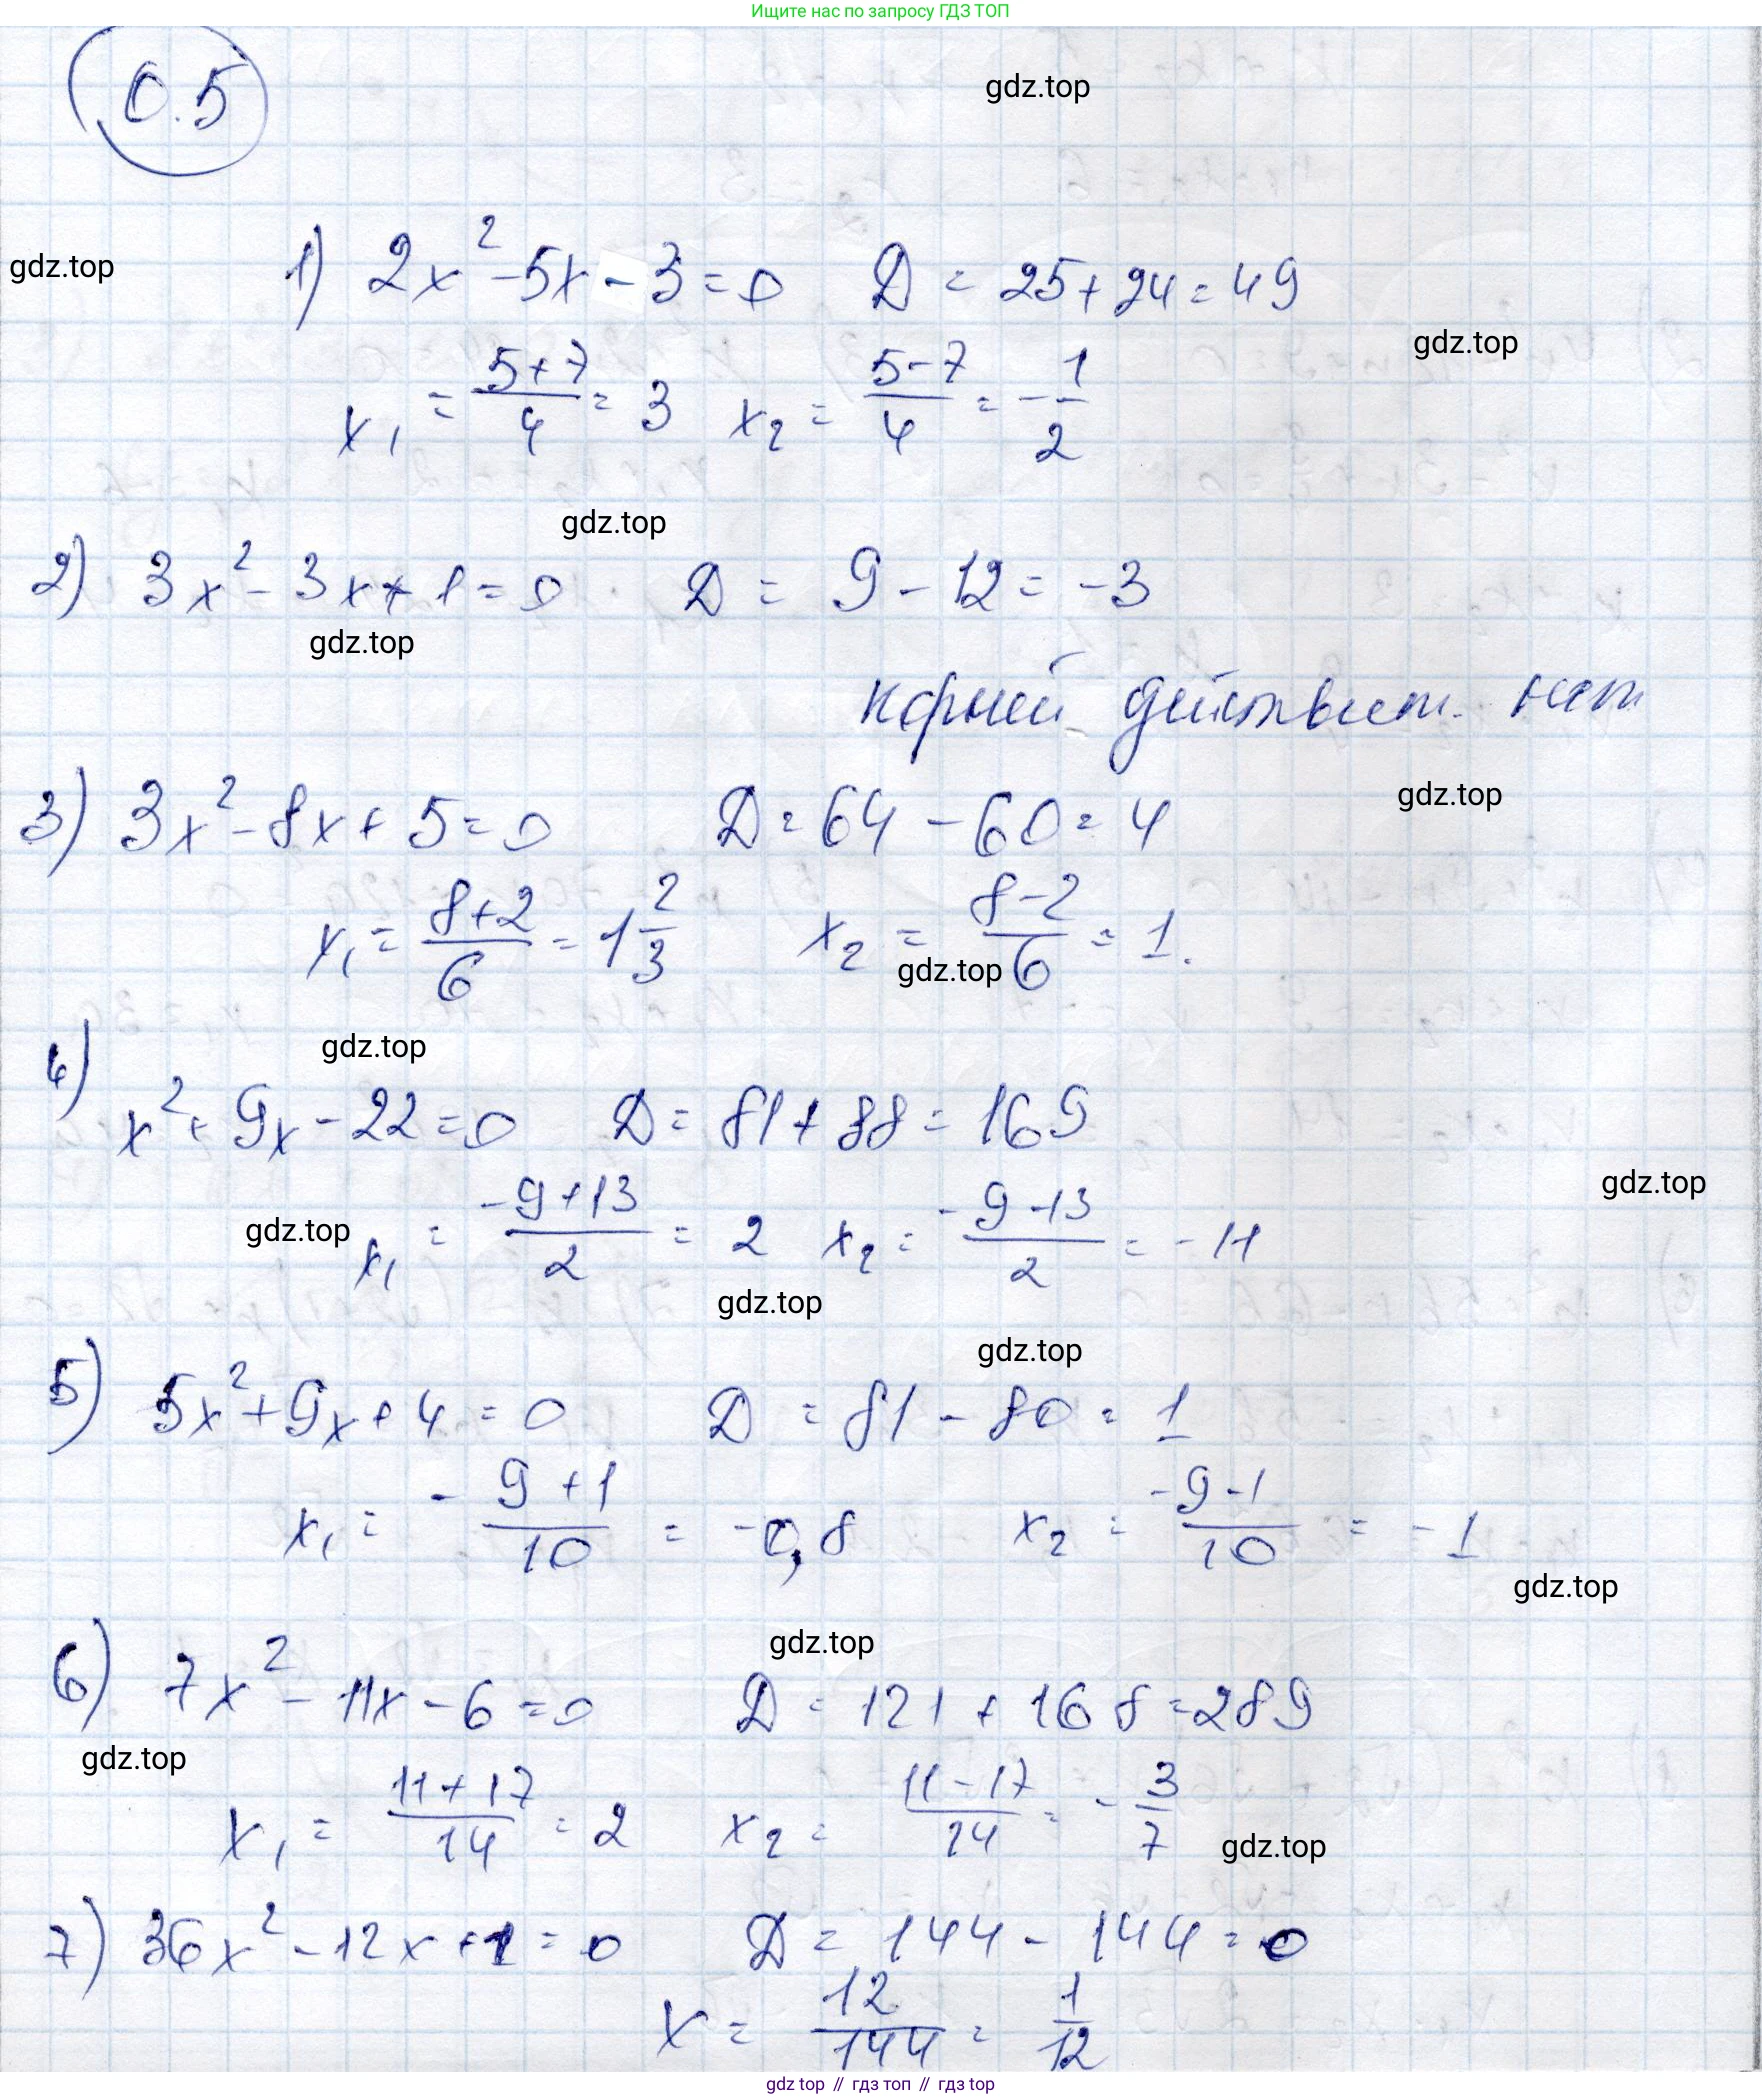 Ищите нас по запросу ГДЗ ТОП
0.5
gdz.top
1) 2x² - 5x - 3 = 0 D = 25 + 24 = 49
gdz.top
gdz.top
x₁ = (5+7)/4 = 3 x₂ = (5-7)/4 = -1/2
gdz.top
2) 3x² - 3x + 1 = 0 D = 9 - 12 = -3
gdz.top
корней действит. нет
3) 3x² - 8x + 5 = 0 D = 64 - 60 = 4
gdz.top
x₁ = (8+2)/6 = 1 2/3 x₂ = (8-2)/6 = 1.
gdz.top
gdz.top
4) x² + 9x - 22 = 0 D = 81 + 88 = 169
gdz.top
x₁ = (-9+13)/2 = 2 x₂ = (-9-13)/2 = -11
gdz.top
gdz.top
gdz.top
5) 5x² + 9x + 4 = 0 D = 81 - 80 = 1
x₁ = (-9+1)/10 = -0,8 x₂ = (-9-1)/10 = -1
gdz.top
gdz.top
6) 7x² - 11x - 6 = 0 D = 121 + 168 = 289
gdz.top
x₁ = (11+17)/14 = 2 x₂ = (11-17)/14 = -3/7
gdz.top
7) 36x² - 12x + 1 = 0 D = 144 - 144 = 0
x = 12/144 = 1/12
gdz top // гдз топ // gdz top